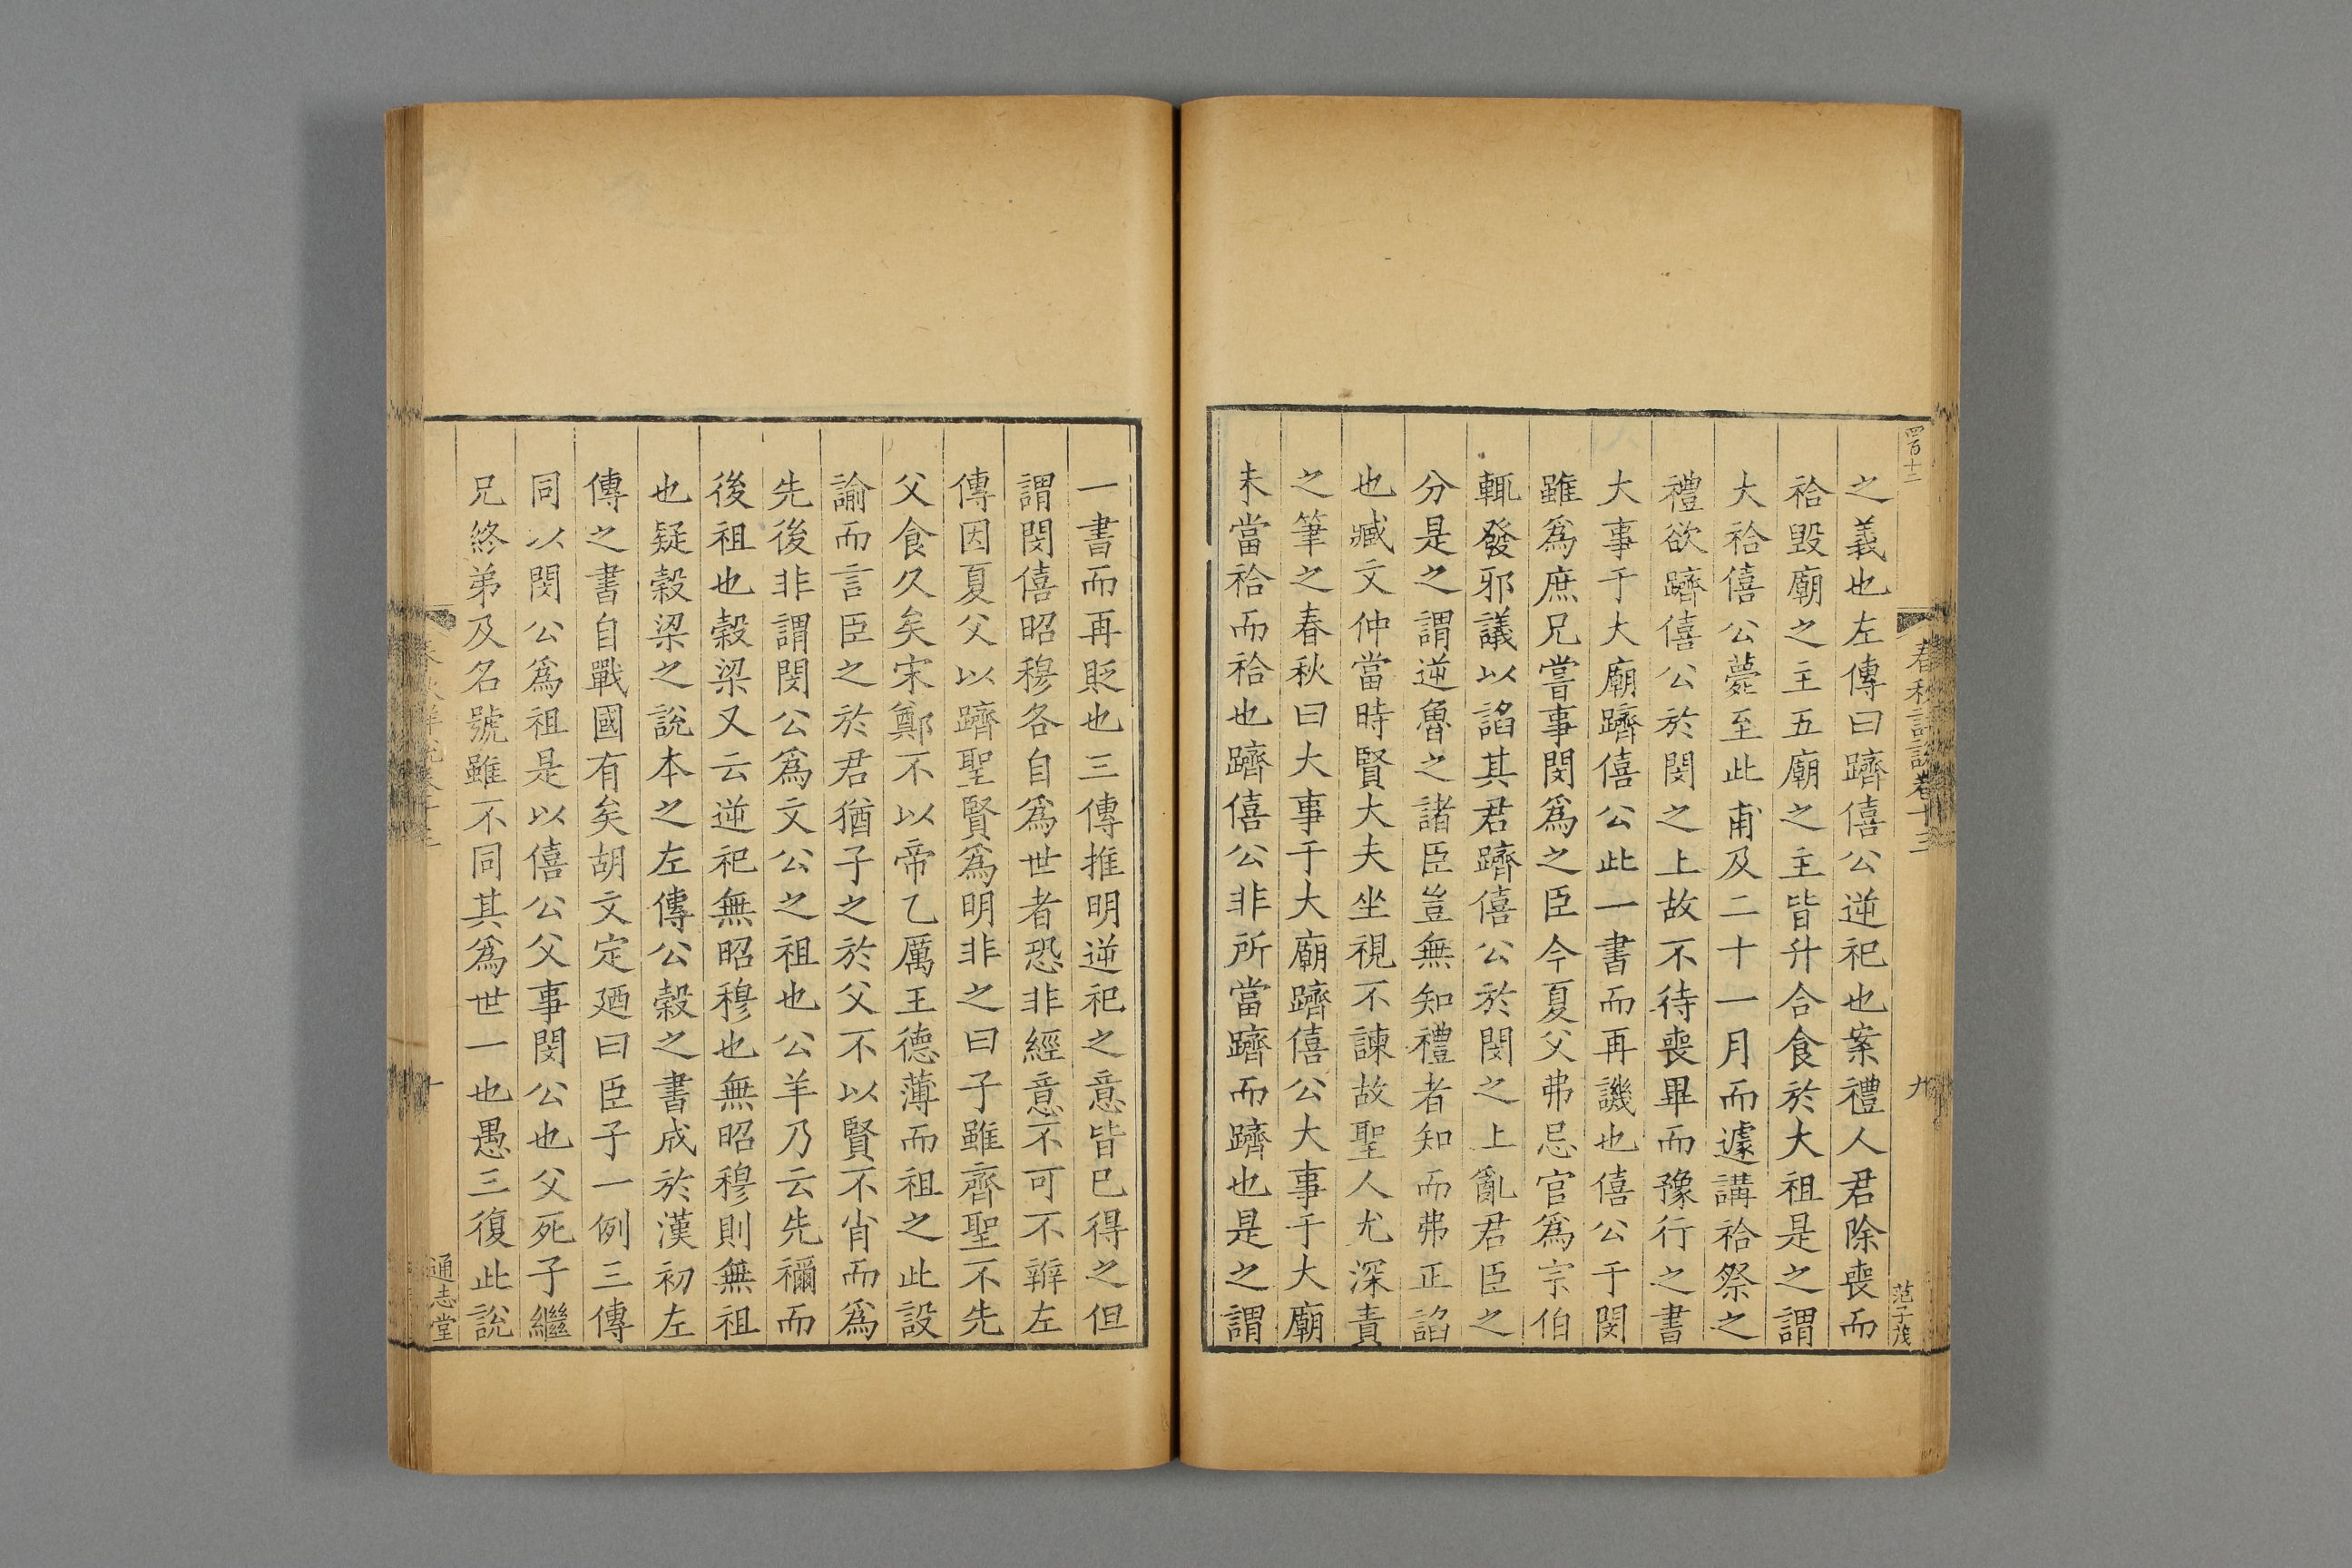 四百十二
春秋詳說卷十三
九
范子茂
之義也左傳曰躋僖公逆祀也案禮人君除喪而
祫毀廟之主五廟之主皆升合食於大祖是之謂
大祫僖公薨至此甫及二十一月而遽講祫祭之
禮欲躋僖公於閔之上故不待喪畢而豫行之書
大事于大廟躋僖公此一書而再譏也僖公于閔
雖爲庶兄嘗事閔爲之臣今夏父弗忌官爲宗伯
輒發邪議以諂其君躋僖公於閔之上亂君臣之
分是之謂逆魯之諸臣豈無知禮者知而弗正諂
也臧文仲當時賢大夫坐視不諫故聖人尤深責
之筆之春秋曰大事于大廟躋僖公大事于大廟
未當祫而祫也躋僖公非所當躋而躋也是之謂
一書而再貶也三傳推明逆祀之意皆已得之但
謂閔僖昭穆各自爲世者恐非經意不可不辯左
傳因夏父以躋聖賢爲明非之曰子雖齊聖不先
父食久矣宋鄭不以帝乙厲王德薄而祖之此設
諭而言臣之於君猶子之於父不以賢不肖而爲
先後非謂閔公爲文公之祖也公羊乃云先禰而
後祖也穀梁又云逆祀無昭穆也無昭穆則無祖
也疑穀梁之說本之左傳公穀之書成於漢初左
傳之書自戰國有矣胡文定廼曰臣子一例三傳
同以閔公爲祖是以僖公父事閔公也父死子繼
兄終弟及名號雖不同其爲世一也愚三復此說
十
通志堂